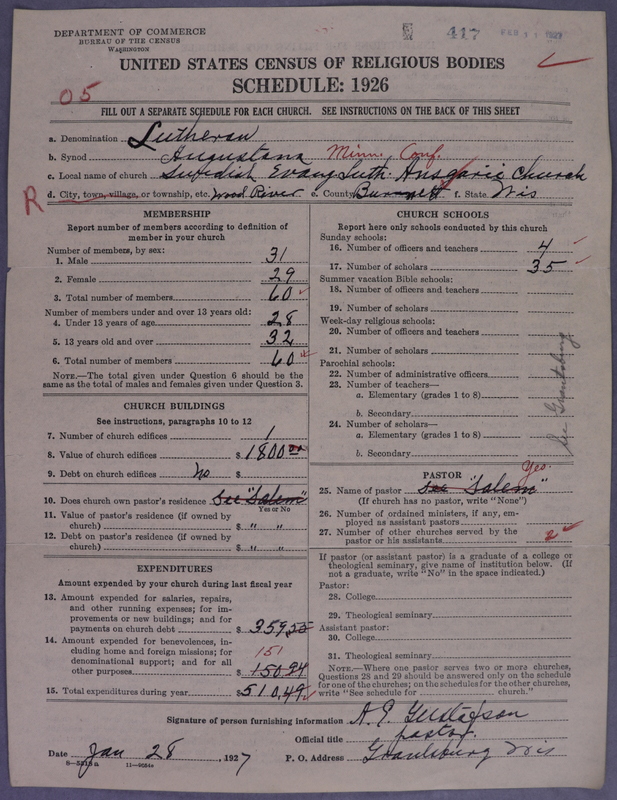 DEPARTMENT OF COMMERCE
BUREAU OF THE CENSUS
WASHINGTON
417
UNITED STATES CENSUS OF RELIGIOUS BODIES
SCHEDULE: 1926
05
FILL OUT A SEPARATE SCHEDULE FOR EACH CHURCH. SEE INSTRUCTIONS ON THE BACK OF THIS SHEET
a. Denomination Lutheran
b. Synod Augustana Minn. Conf.
c. Local name of church Swedish Evang Luth. Ansgarii Church
R d. City, town, village, or township, etc. Wood River e. County Burnett f. State Wis
MEMBERSHIP
Report number of members according to definition of
member in your church
Number of members, by sex:
1. Male 31
2. Female 29
3. Total number of members 60
Number of members under and over 13 years old:
4. Under 13 years of age 28
5. 13 years old and over 32
6. Total number of members 60
NOTE.—The total given under Question 6 should be the
same as the total of males and females given under Question 3.
CHURCH BUILDINGS
See instructions, paragraphs 10 to 12
7. Number of church edifices 1
8. Value of church edifices $ 1800.00
9. Debt on church edifices No $
10. Does church own pastor's residence See "Salem"
Yes or No
11. Value of pastor's residence (if owned by
church) $ " "
12. Debt on pastor's residence (if owned by
church) $ " "
EXPENDITURES
Amount expended by your church during last fiscal year
13. Amount expended for salaries, repairs,
and other running expenses; for im-
provements or new buildings; and for
payments on church debt $ 359.55
14. Amount expended for benevolences, in-
cluding home and foreign missions; for
denominational support; and for all
151
other purposes $ 150.94
15. Total expenditures during year $ 510.49
CHURCH SCHOOLS
Report here only schools conducted by this church
Sunday schools:
16. Number of officers and teachers 4
17. Number of scholars 35
Summer vacation Bible schools:
18. Number of officers and teachers
19. Number of scholars
Week-day religious schools:
20. Number of officers and teachers
21. Number of scholars
Parochial schools:
22. Number of administrative officers
23. Number of teachers—
a. Elementary (grades 1 to 8)
b. Secondary
24. Number of scholars—
a. Elementary (grades 1 to 8)
b. Secondary
See Grantsburg
PASTOR
Yes.
25. Name of pastor See "Salem"
(If church has no pastor, write "None")
26. Number of ordained ministers, if any, em-
ployed as assistant pastors
27. Number of other churches served by the
pastor or his assistants 2
If pastor (or assistant pastor) is a graduate of a college or
theological seminary, give name of institution below. (If
not a graduate, write "No" in the space indicated.)
Pastor:
28. College
29. Theological seminary
Assistant pastor:
30. College
31. Theological seminary
NOTE.—Where one pastor serves two or more churches,
Questions 28 and 29 should be answered only on the schedule
for one of the churches; on the schedules for the other churches,
write "See schedule for church."
Signature of person furnishing information A. E. Gustafson
Official title pastor.
Date Jan 28, 1927 P. O. Address Grantsburg Wis
8—5518a 11—9084a